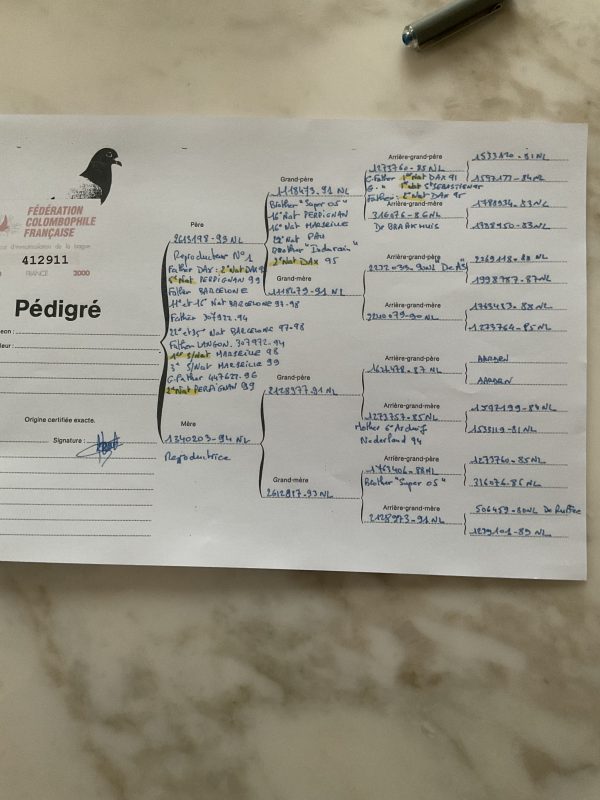 FÉDÉRATION
COLOMBOPHILE
FRANÇAISE
412911
FRANCE 2000
Pédigré
Origine certifiée exacte.
Signature :
Père
2613198-93 NL
Reproducteur N°1
Father DAX : 2e Nat DAX
5e Nat PERPIGNAN 99
Father BARCELONE
11e et 16e Nat BARCELONE 97-98
Father 307922.94
22e et 35e Nat BARCELONE 97-98
Father LANGON. 307972.94
1er S/Nat MARSEILLE 98
3e S/Nat MARSEILLE 99
G. Father 447627.96
2e Nat PERPIGNAN 99
Mère
1340203-94 NL
Reproductrice
Grand-père
1118473-91 NL
Brother "Super 05"
16e Nat PERPIGNAN
16e Nat MARSEILLE
Nat PAU
Brother "Indurain"
2e Nat DAX 95
1118479-91 NL
Grand-père
2128977-91 NL
Grand-mère
2612817-93 NL
Arrière-grand-père
1273760-85 NL
G. Father 1er Nat DAX 91
G. " 1er Nat St SEBASTIEN 95
Father: 2e Nat DAX 95
Arrière-grand-mère
316076-86 NL
Dr BRAAKHUIS
Arrière-grand-père
Arrière-grand-mère
Arrière-grand-père
1621478-87 NL
Arrière-grand-mère
1273757-85 NL
Mother 6e
Nederland 94
Arrière-grand-père
1763406-88 NL
Brother "Super 05"
Arrière-grand-mère
2128973-91 NL
1533120-81 NL
1597177-84 NL
1788934-83 NL
1763483-88 NL
1273764-85 NL
AARDEN
AARDEN
1597199-84 NL
1533119-81 NL
1273760-85 NL
316076-86 NL
506459-80 NL De
1279101-89 NL